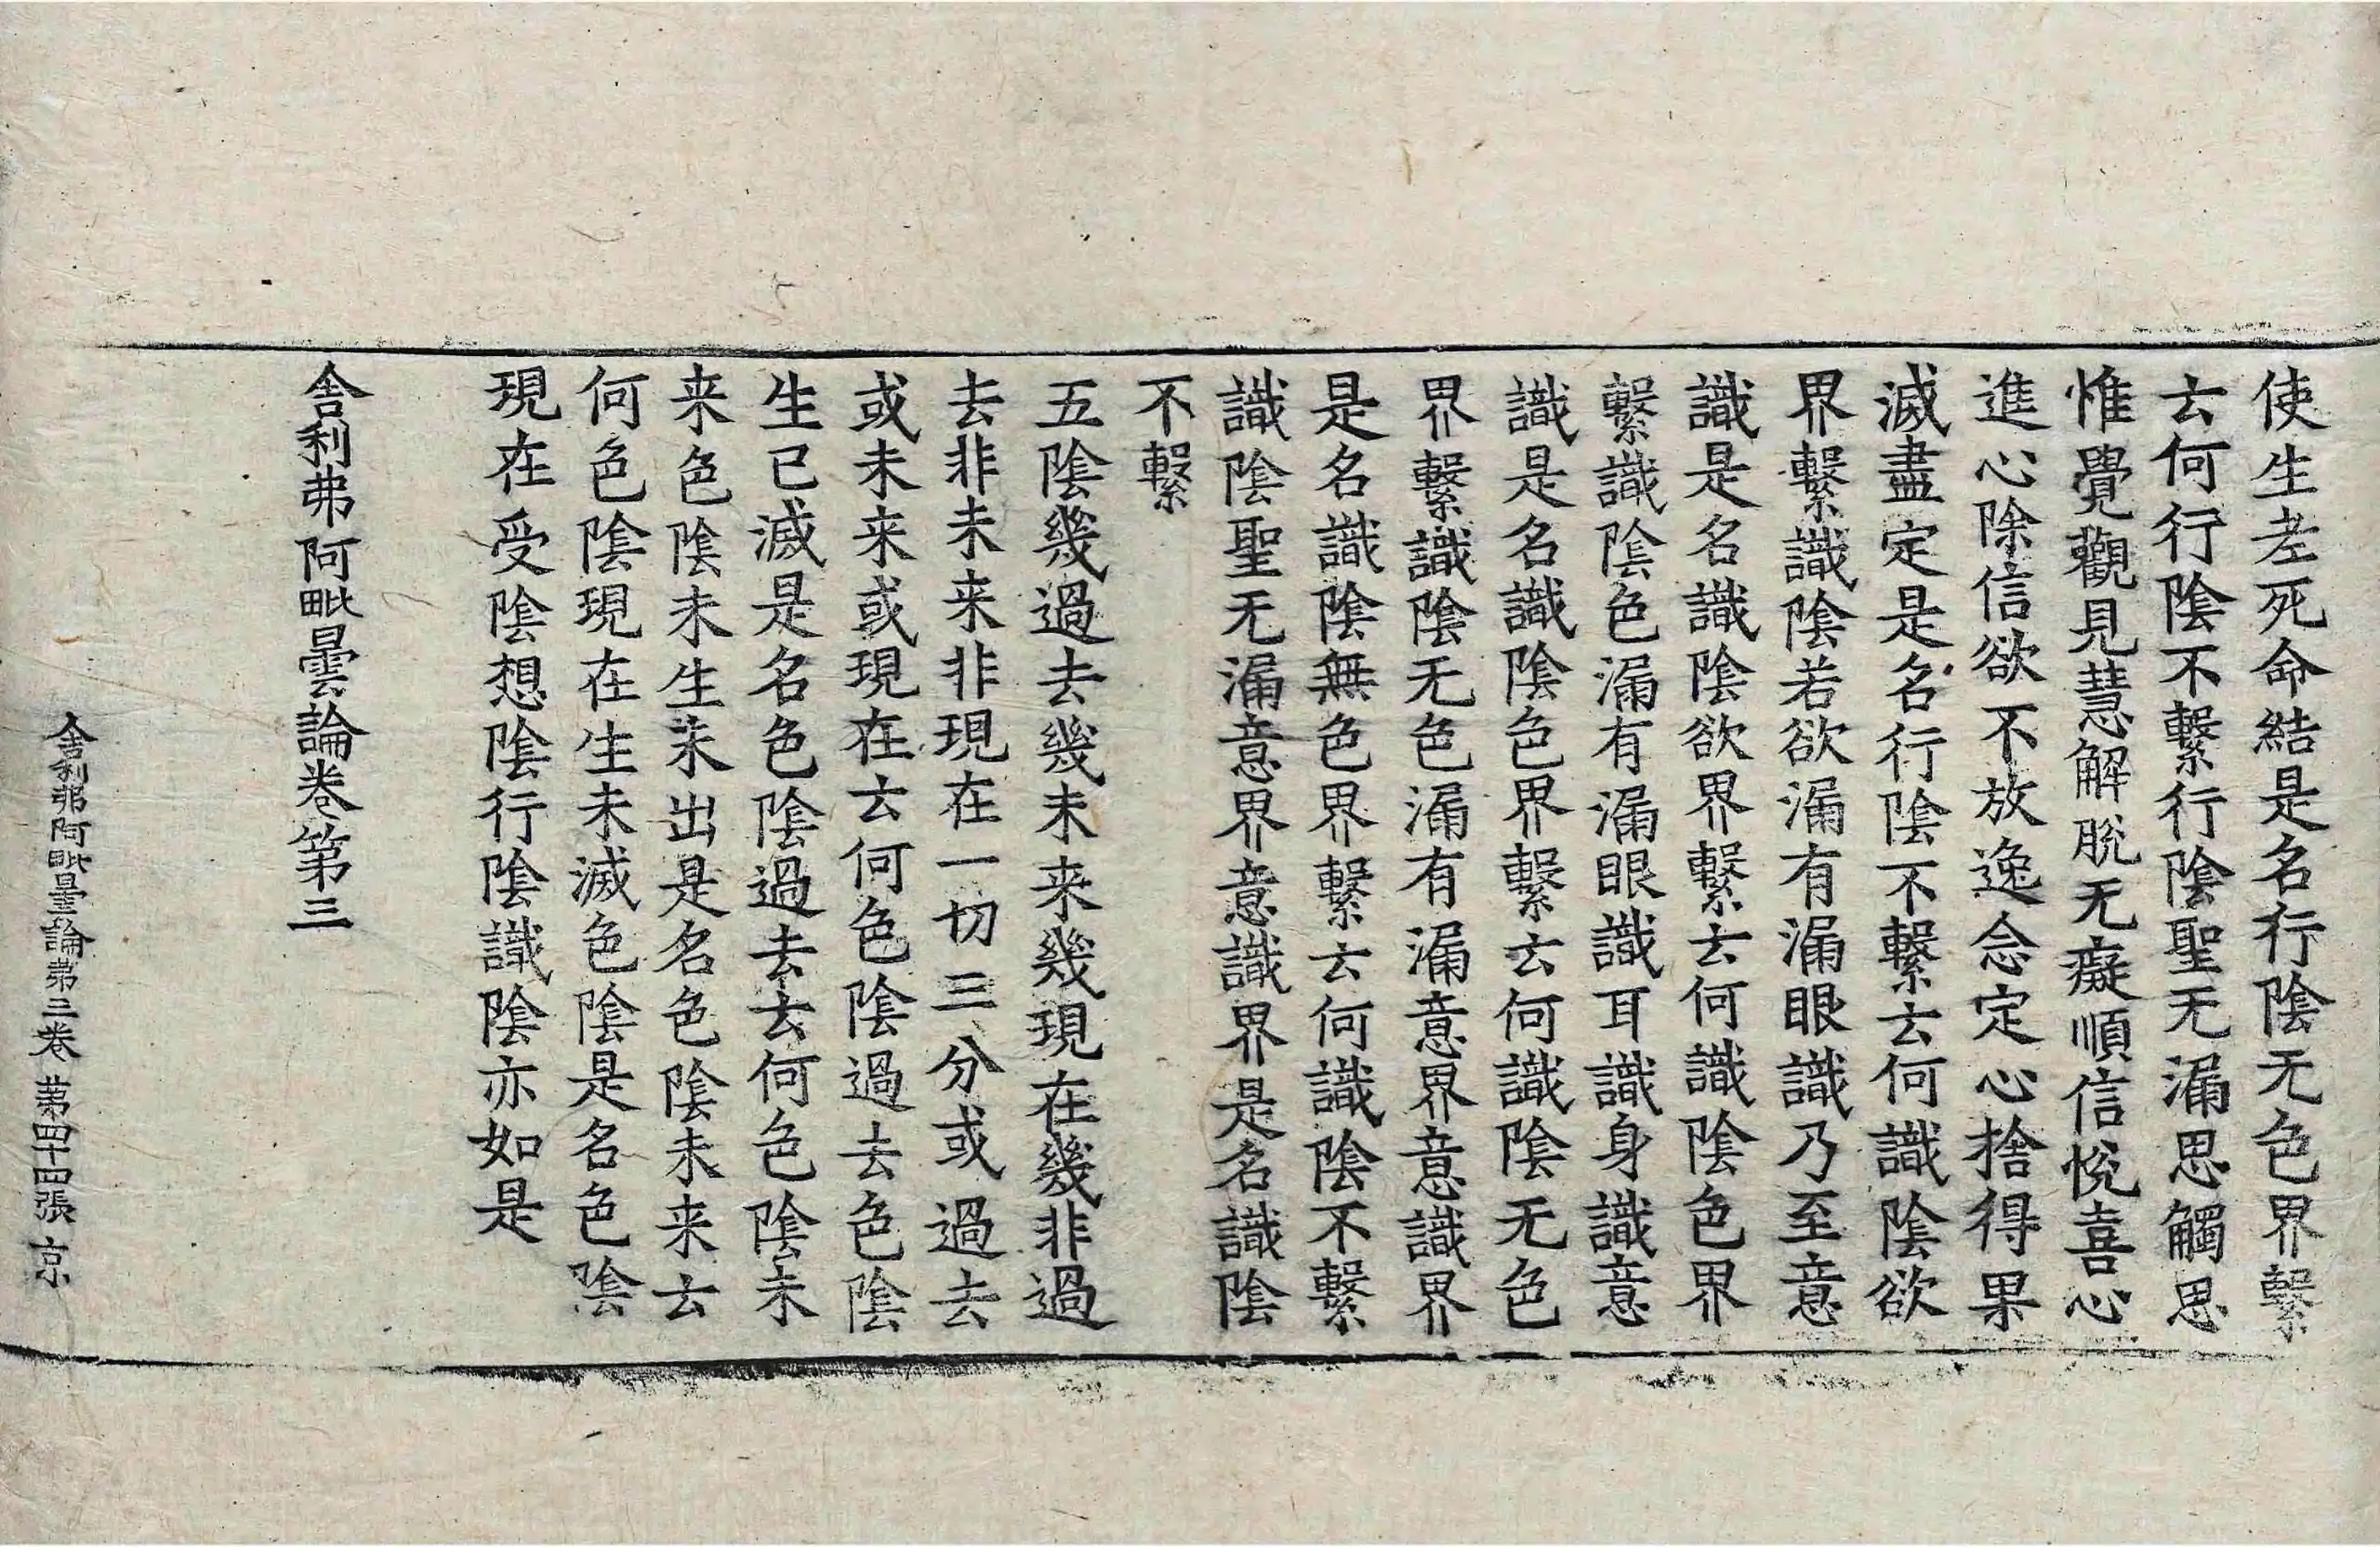 使生老死命結是名行陰无色界繫
云何行陰不繫行陰聖无漏思觸思
惟覺觀見慧解脫无癡順信悅喜心
進心除信欲不放逸念定心捨得果
滅盡定是名行陰不繫云何識陰欲
界繫識陰若欲漏有漏眼識乃至意
識是名識陰欲界繫云何識陰色界
繫識陰色漏有漏眼識耳識身識意
識是名識陰色界繫云何識陰无色
界繫識陰无色漏有漏意界意識界
是名識陰無色界繫云何識陰不繫
識陰聖无漏意界意識界是名識陰
不繫
五陰幾過去幾未来幾現在幾非過
去非未来非現在一切三分或過去
或未来或現在云何色陰過去色陰
生已滅是名色陰過去云何色陰未
来色陰未生未出是名色陰未来云
何色陰現在生未滅色陰是名色陰
現在受陰想陰行陰識陰亦如是
舍利弗阿毗曇論卷第三
舍利弗阿毗曇論第三卷 第四十四張 京